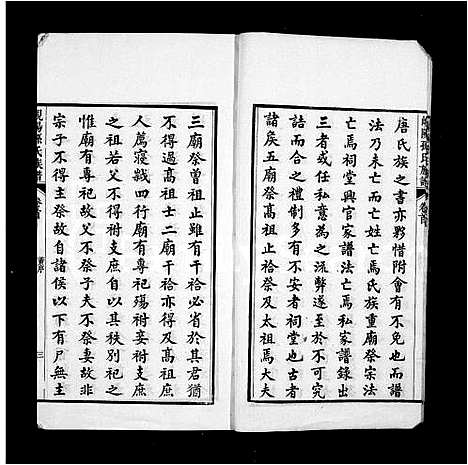 唐氏族之書亦夥惜附會有不免也而譜
法乃未亡而亡姓亡焉氏族重廟祭宗法
亡焉祠堂興官家譜法亡焉私家譜錄出
三者或任私意為之流弊遂至於不可究
詰而合之禮制多有未安者祠堂古宮室
諸矣五廟祭高祖止祫祭及太祖焉大夫
三廟祭曾祖止雖有干祫必省於其君猶
不得過高祖士二廟干祫亦祭及高祖庶
人薦寢祇四行廟有專祀殤祔妾祔支庶
之祖若父不得祔支庶自以其秩別祀之
惟廟有專祀故父不祭子夫不祭妻故非
宗子不得主祭故自諸侯以下有尸無主
族譜
卷首
三